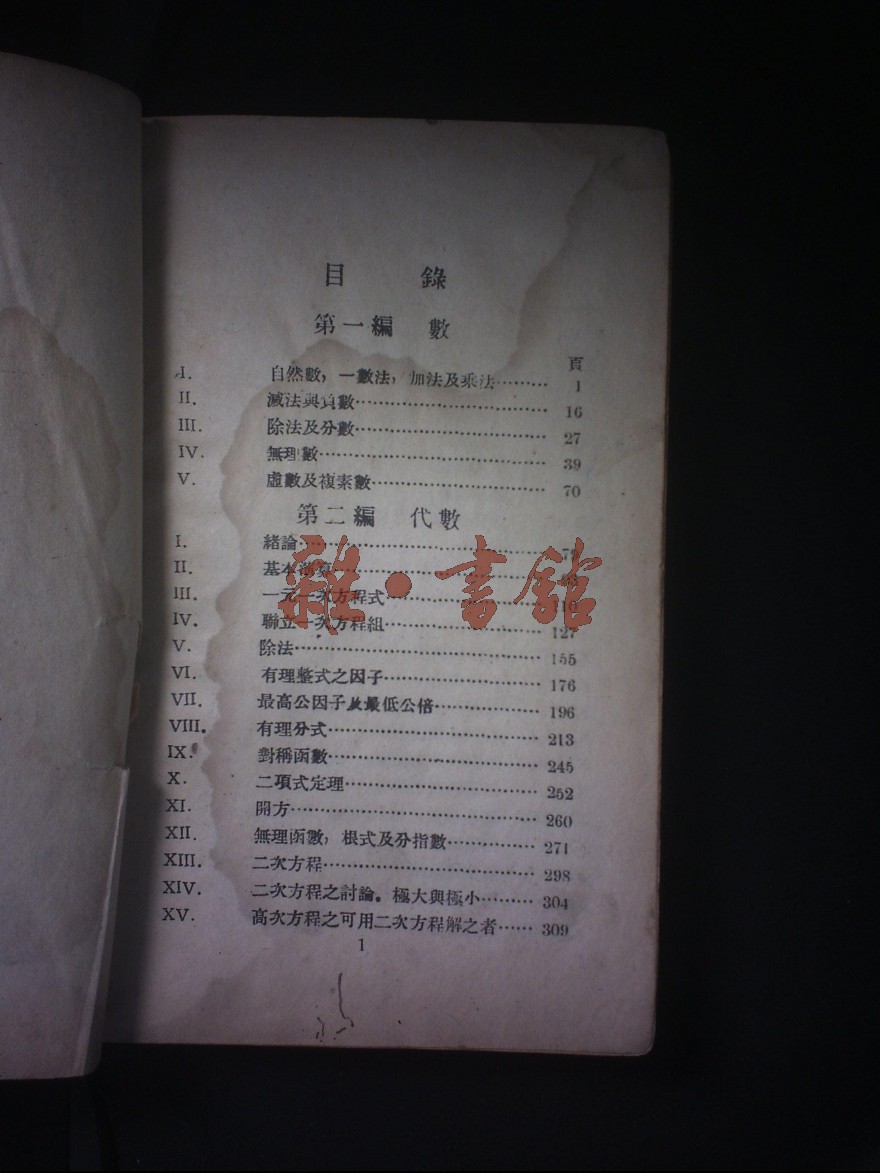 目 錄
第一編 數
頁
I. 自然數，一數法，加法及乘法……… 1
II. 減法與負數…………………… 16
III. 除法及分數…………………… 27
IV. 無理數…………………… 39
V. 虛數及複素數…………………… 70
第二編 代數
I. 緒論……………………
II. 基本演算……………………
III. 一元一次方程式…………………… 110
IV. 聯立一次方程組…………………… 127
V. 除法…………………… 155
VI. 有理整式之因子…………………… 176
VII. 最高公因子及最低公倍…………… 196
VIII. 有理分式…………………… 213
IX. 對稱函數…………………… 245
X. 二項式定理…………………… 252
XI. 開方…………………… 260
XII. 無理函數，根式及分指數………… 271
XIII. 二次方程…………………… 298
XIV. 二次方程之討論。極大與極小……… 304
XV. 高次方程之可用二次方程解之者…… 309
1
雜·書館